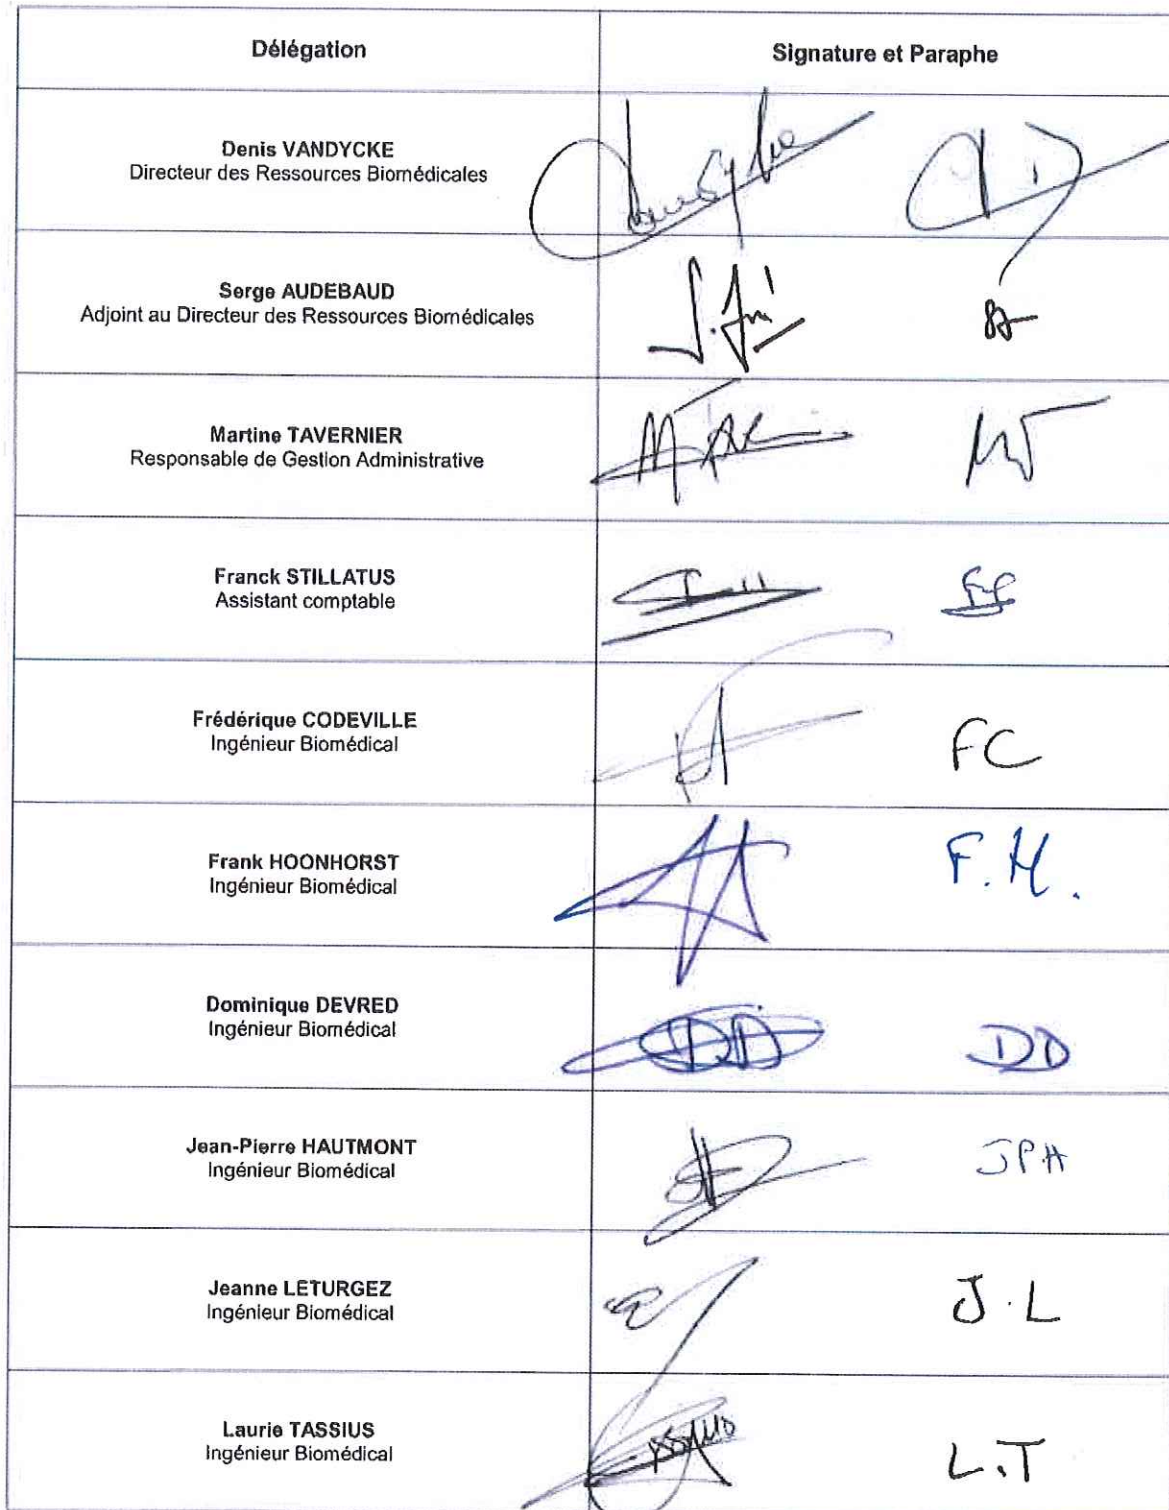 Délégation
Signature et Paraphe
Denis VANDYCKE
Directeur des Ressources Biomédicales
Serge AUDEBAUD
Adjoint au Directeur des Ressources Biomédicales
Martine TAVERNIER
Responsable de Gestion Administrative
MT
Franck STILLATUS
Assistant comptable
Frédérique CODEVILLE
Ingénieur Biomédical
FC
Frank HOONHORST
Ingénieur Biomédical
F.H.
Dominique DEVRED
Ingénieur Biomédical
DD
DD
Jean-Pierre HAUTMONT
Ingénieur Biomédical
JPH
Jeanne LETURGEZ
Ingénieur Biomédical
J.L
Laurie TASSIUS
Ingénieur Biomédical
L.T